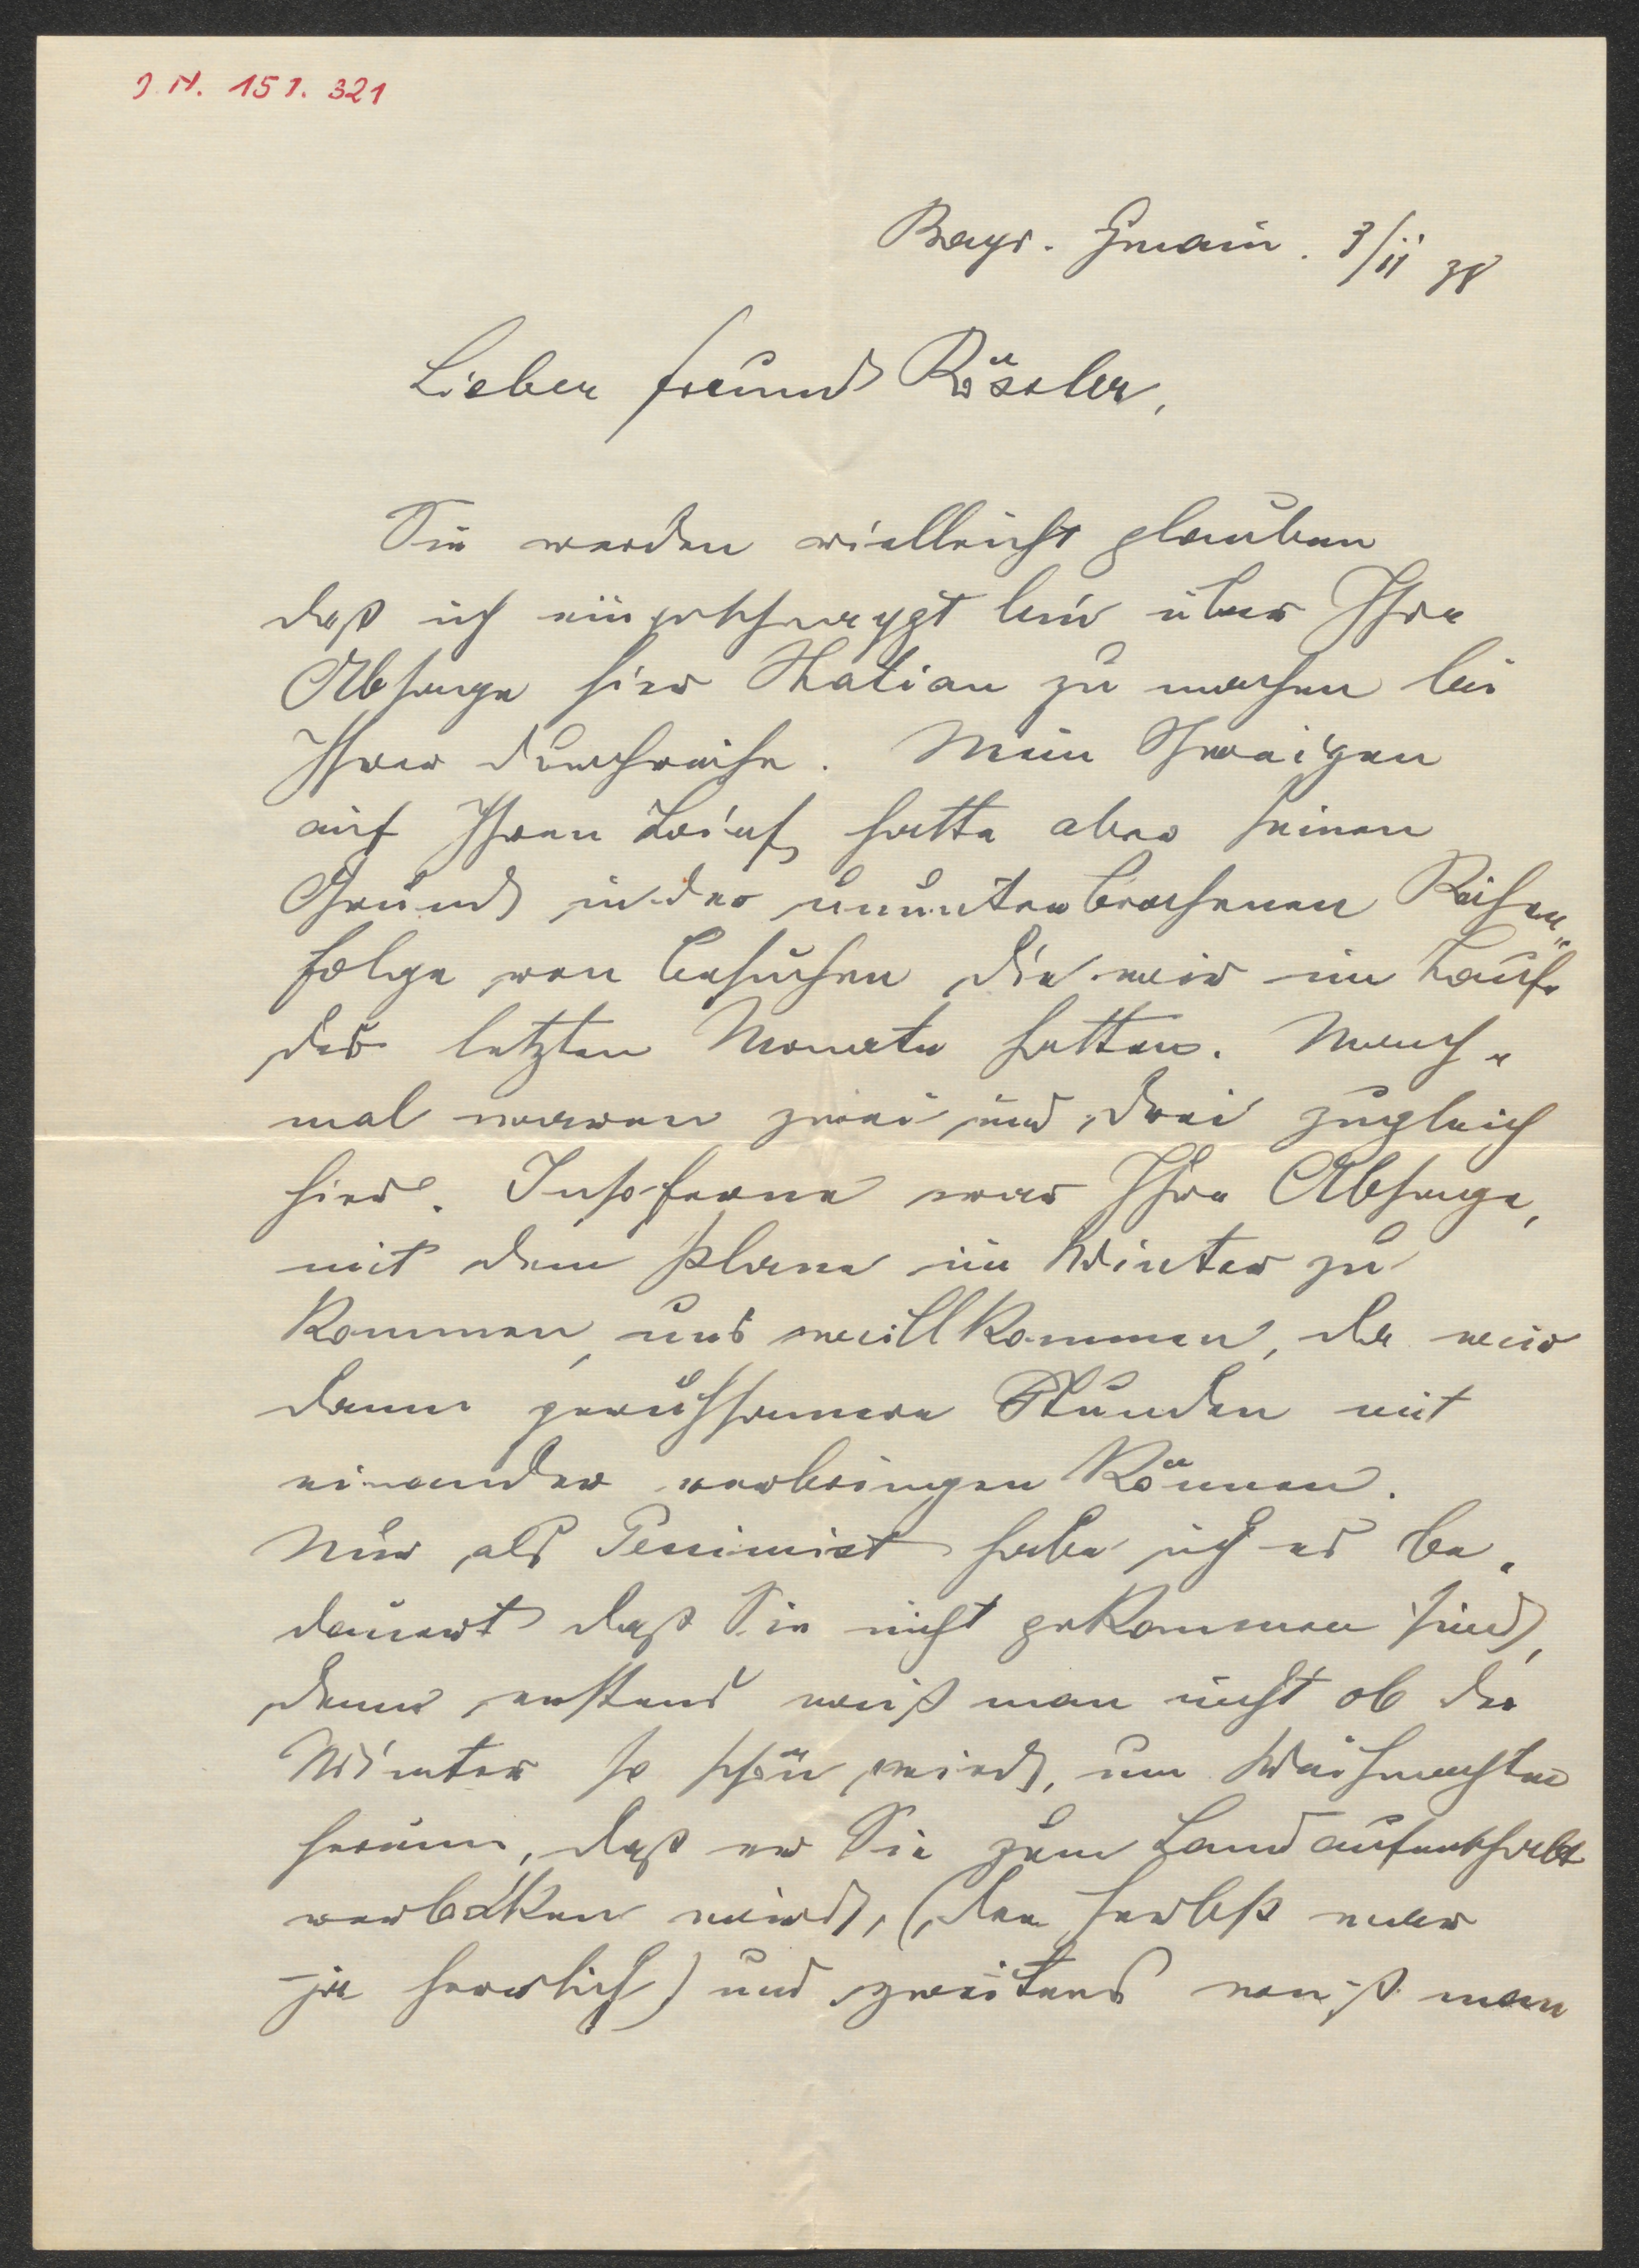 J. N. 151. 321
Bayr. Gmain. 3/11 38
Lieber Freund Rössler,
Sie werden vielleicht glauben
daß ich eingeschnappt bin über Ihre
Absage hier Station zu machen bei
Ihrer Durchreise. Mein Schweigen
auf Ihren Brief hatte aber seinen
Grund in der ununterbrochenen Reihen„
folge von Besuchen die wir im Laufe
des letzten Monats hatten. Manch„
mal waren zwei und drei zugleich
hier. Insoferne war Ihre Absage,
mit dem Plane im Winter zu
kommen, uns willkommen, da wir
dann geruhsamere Stunden mit
einander verbringen können.
Nur als Pessimist habe ich es be„
dauert daß Sie nicht gekommen sind,
denn erstens weiß man nicht ob der
Winter so schön wird, um Weihnachten
herum, daß er Sie zum Landaufenthalt
verlocken wird, (der Herbst war
ja herrlich) und zweitens weiß man